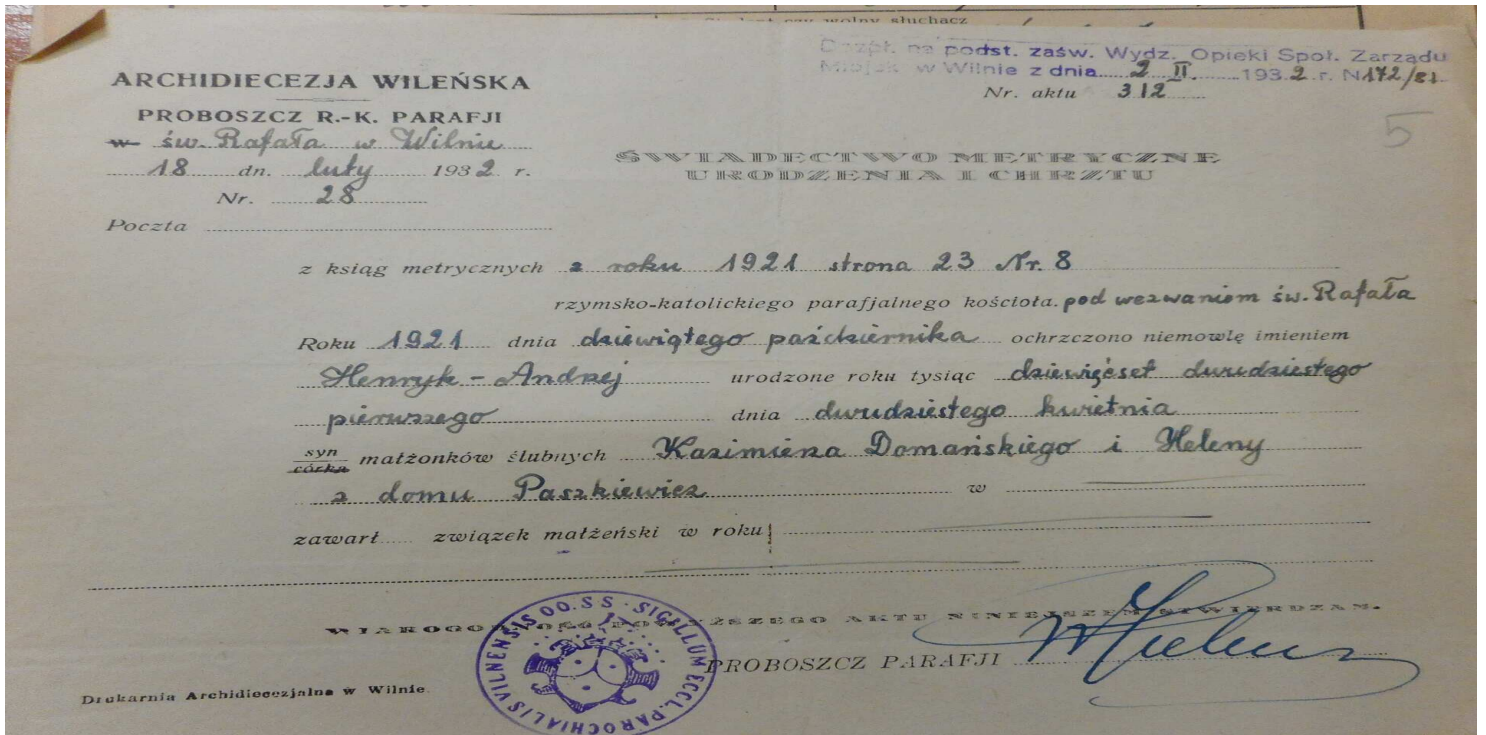 wolny słuchacz
Bezpł. na podst. zaśw. Wydz. Opieki Społ. Zarządu
Miejsk. w Wilnie z dnia 2 II. 1932 r. N172/81
Nr. aktu 312
5
ARCHIDIECEZJA WILEŃSKA
PROBOSZCZ R.-K. PARAFJI
w św. Rafała w Wilnie
18 dn. luty 1932 r.
Nr. 28
Poczta
ŚWIADECTWO METRYCZNE
URODZENIA I CHRZTU
z ksiąg metrycznych z roku 1921 strona 23 Nr. 8
rzymsko-katolickiego parafjalnego kościoła pod wezwaniem św. Rafała
Roku 1921 dnia dziewiątego października ochrzczono niemowlę imieniem
Henryk - Andrzej urodzone roku tysiąc dziewięćset dwudziestego
pierwszego dnia dwudziestego kwietnia
syn
córka małżonków ślubnych Kazimierza Domańskiego i Heleny
z domu Paszkiewicz w
zawarł związek małżeński w roku
WIAROGODNOŚĆ POWYŻSZEGO AKTU NINIEJSZEM STWIERDZAM.
PROBOSZCZ PARAFJI
SIGILLUM ECCL. PAROCHIALIS VILNENSIS OO. SS.
Drukarnia Archidiecezjalna w Wilnie.